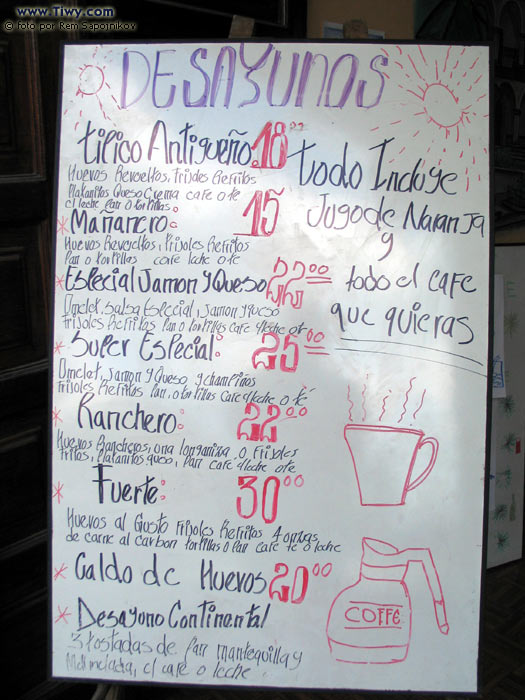 www.Tiwy.com
© foto por Rem Sapotnikov
DESAYUNOS
tipico Antigueño. 18
Huevos Revoeltos, frijoles Refritos
Platanitos Queso Crema cafe o te
c leche Pan o tortillas.
* Mañanero: 15
Huevos Reveveltos, frijoles Refritos
Pan o tortillas cafe leche o te
* Especial Jamon y Queso 22.00
Omelet, Salsa Especial, Jamon y queso
frijoles Refritos Pan o tortillas cafe c/leche o te
* Super Especial: 25.00
Omelet, Jamon y Queso, y champiños
frijoles Refritos Pan, o tortillas Cafe c/leche o té
* Ranchero: 22.00
Huevos Rancheros, una longaniza o Frijoles
fritos, Platanitos queso, Pan café c/leche o te
* Fuerte: 30.00
Huevos al Gusto Frijoles Refritos 4 onzas
de carne al carbon tortillas o Pan cafe te o leche
* Caldo de Huevos 20.00
* Desayono Continental
3 tostadas de Pan mantequilla y
Melmelada, el café o leche
todo Incluye
Jugo de Naranja
y
todo el cafe
que quieras
COFFE